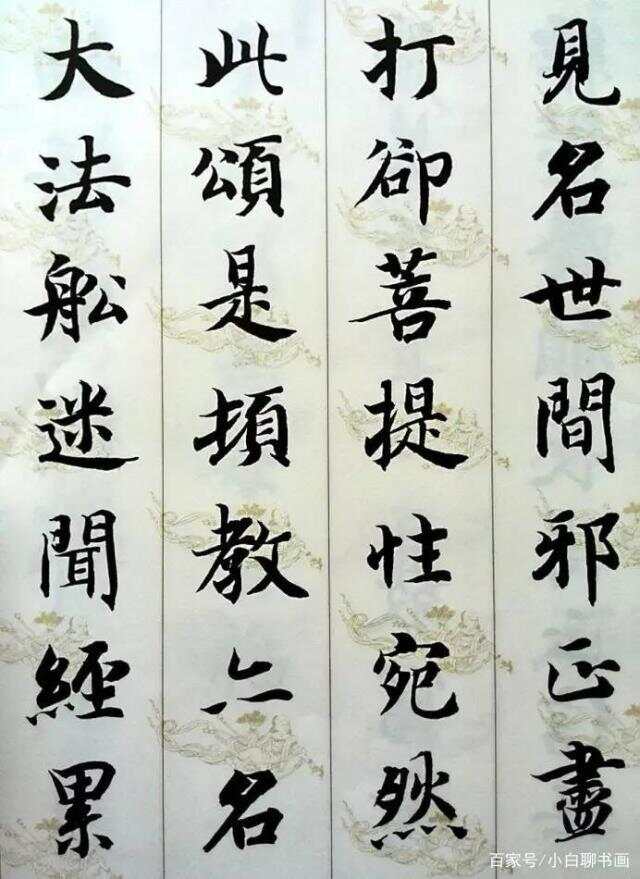 見名世間邪正盡
打卻菩提性宛然
此頌是頓教亦名
大法船迷聞經累
百家号/小白聊书画